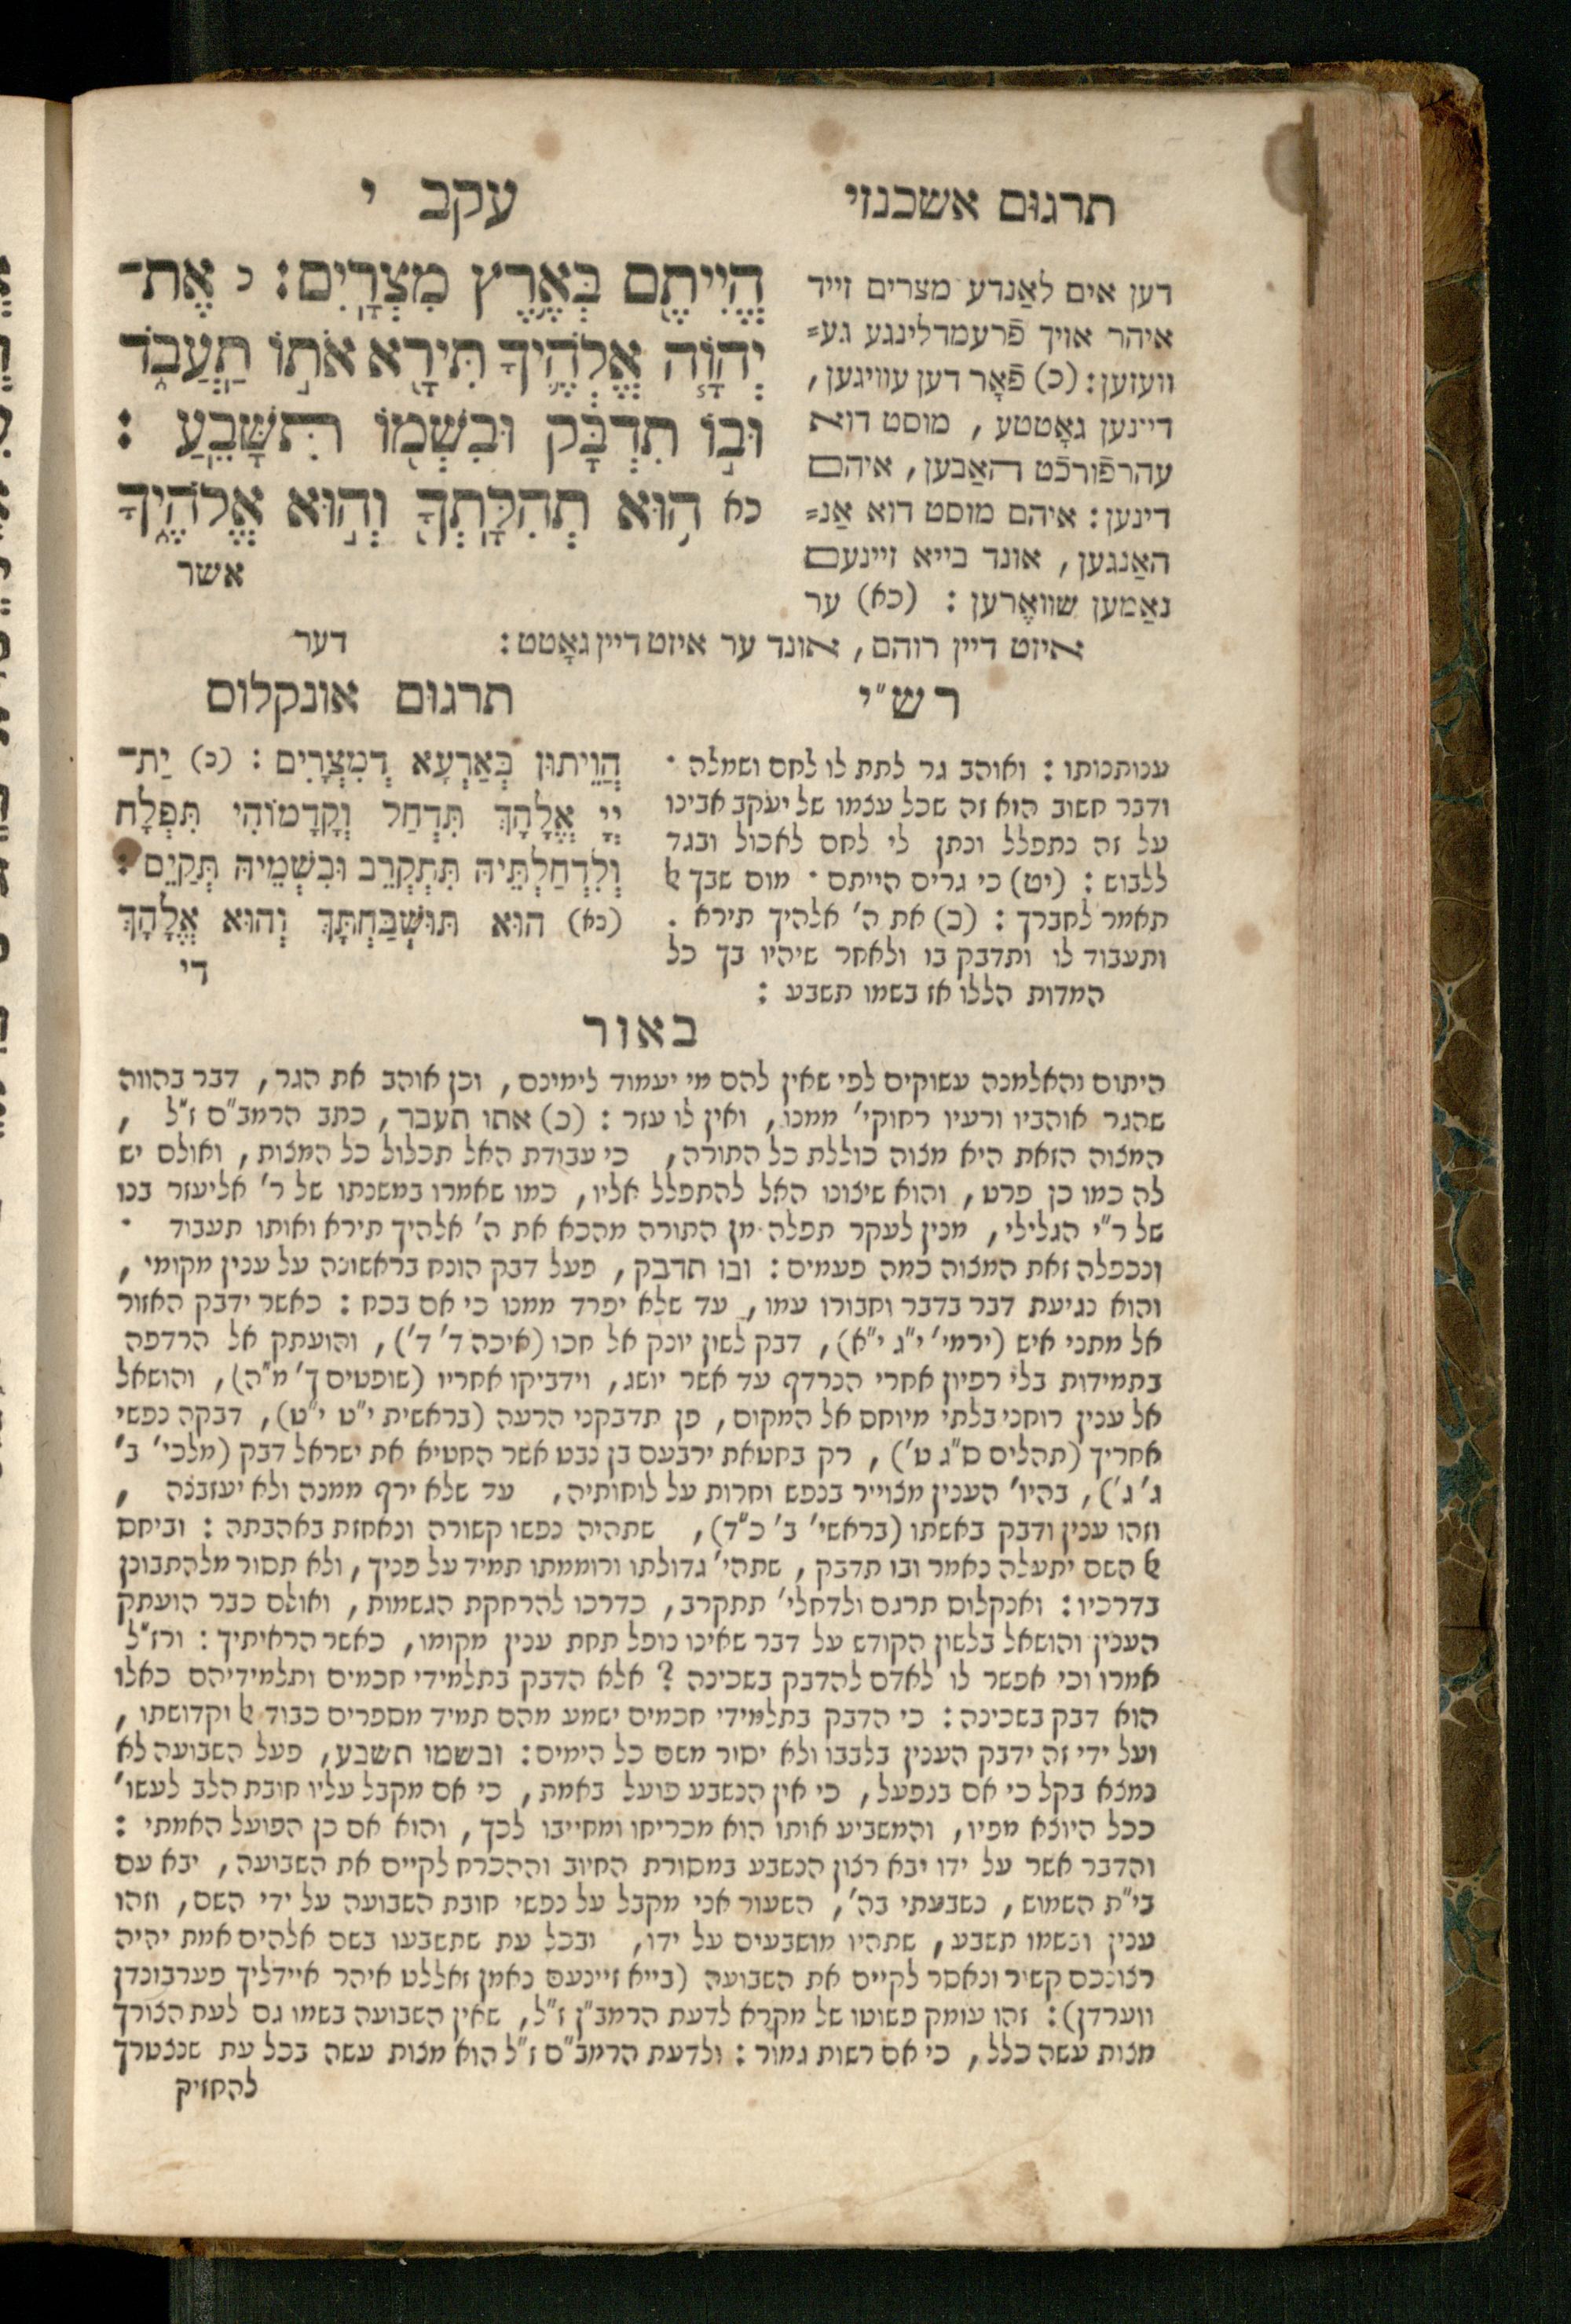 תרגום אשכנזי
עקב י
דען אים לאַנדע מצרים זייד
איהר אויך פֿרעמדלינגע גע=
וועזען: (כ) פֿאָר דען עוויגען,
דיינען גאָטטע, מוסט דוא
עהרפֿורכֿט האַבען, איהם
דינען: איהם מוסט דוא אַנ=
האַנגען, אונד בייא זיינעם
נאַמען שוואֶרען: (כא) ער
איזט דיין רוהם, אונד ער איזט דיין גאָטט:
דער
הֱיִיתֶ֖ם בְּאֶ֥רֶץ מִצְרָֽיִם: כ אֶת־
יְהוָ֧ה אֱלֹהֶ֛יךָ תִּירָ֖א אֹת֣וֹ תַעֲבֹ֑ד
וּב֣וֹ תִדְבָּ֔ק וּבִשְׁמ֖וֹ תִּשָּׁבֵֽעַ:
כא ה֥וּא תְהִלָּתְךָ֖ וְה֣וּא אֱלֹהֶ֑יךָ
אשר
רש"י
ענותנותו: ואוהב גר לתת לו לחם ושמלה ·
ודבר חשוב הוא זה שכל עצמו של יעקב אבינו
על זה נתפלל ונתן לי לחם לאכול ובגד
ללבוש: (יט) כי גרים הייתם · מום שבך ﭏ
תאמר לחברך: (כ) את ה' אלהיך תירא.
ותעבוד לו ותדבק בו ולאחר שיהיו בך כל
המדות הללו אז בשמו תשבע:
תרגום אונקלוס
הֲוֵיתוּן בְּאַרְעָא דְמִצְרָיִם: (כ) יַת־
יְיָ אֱלָהָךְ תִּדְחַל וְקָדָמוֹהִי תִּפְלָח
וְלִדְחַלְתֵּיהּ תִּתְקְרֵב וּבִשְׁמֵיהּ תְּקַיֵּם:
(כא) הוּא תּוּשְׁבַּחְתָּךְ וְהוּא אֱלָהָךְ
די
באור
היתום והאלמנה עשוקים לפי שאין להם מי יעמוד לימינם, וכן אוהב את הגר, דבר בהווה
שהגר אוהביו ורעיו רחוקי' ממנו, ואין לו עזר: (כ) אתו תעבד, כתב הרמב"ם ז"ל,
המצוה הזאת היא מצוה כוללת כל התורה, כי עבודת האל תכלול כל המצות, ואולם יש
לה כמו כן פרט, והוא שיצונו האל להתפלל אליו, כמו שאמרו במשנתו של ר' אליעזר בנו
של ר"י הגלילי, מנין לעקר תפלה מן התורה מהכא את ה' אלהיך תירא ואותו תעבוד ·
ונכפלה זאת המצוה כמה פעמים: ובו תדבק, פעל דבק הונח בראשונה על ענין מקומי,
והוא נגיעת דבר בדבר וחבורו עמו, עד שלא יפרד ממנו כי אם בכח: כאשר ידבק האזור
אל מתני איש (ירמי' י"ג י"א), דבק לשון יונק אל חכו (איכה ד' ד'), והועתק אל הרדפה
בתמידות בלי רפיון אחרי הנרדף עד אשר יושג, וידביקו אחריו (שופטים ך' מ"ה), והושאל
אל ענין רוחני בלתי מיוחס אל המקום, פן תדבקני הרעה (בראשית י"ט י"ט), דבקה נפשי
אחריך (תהלים ס"ג ט'), רק בחטאת ירבעם בן נבט אשר החטיא את ישראל דבק (מלכי' ב'
ג' ג'), בהיו' הענין מצוייר בנפש וחרות על לוחותיה, עד שלא ירף ממנה ולא יעזבנה,
וזהו ענין ודבק באשתו (בראשי' ב' כ"ד), שתהיה נפשו קשורה ונאחזת באהבתה: וביחס
ﭏ השם יתעלה נאמר ובו תדבק, שתהי' גדולתו ורוממתו תמיד על פניך, ולא תסור מלהתבונן
בדרכיו: ואנקלוס תרגם ולדחלי' תתקרב, כדרכו להרחקת הגשמות, ואולם כבר הועתק
הענין והושאל בלשון הקודש על דבר שאינו נופל תחת ענין מקומו, כאשר הראיתיך: ורז"ל
אמרו וכי אפשר לו לאדם להדבק בשכינה? אלא הדבק בתלמידי חכמים ותלמידיהם כאלו
הוא דבק בשכינה: כי הדבק בתלמידי חכמים ישמע מהם תמיד מספרים כבוד ﭏ וקדושתו,
ועל ידי זה ידבק הענין בלבבו ולא יסור משם כל הימים: ובשמו תשבע, פעל השבועה לא
נמצא בקל כי אם בנפעל, כי אין הנשבע פועל באמת, כי אם מקבל עליו חובת הלב לעשו'
ככל היוצא מפיו, והמשביע אותו הוא מכריחו ומחייבו לכך, והוא אם כן הפועל האמתי:
והדבר אשר על ידו יבא רצון הנשבע במסורת החיוב וההכרח לקיים את השבועה, יבא עם
בי"ת השמוש, נשבעתי בה', השעור אני מקבל על נפשי חובת השבועה על ידי השם, וזהו
ענין ובשמו תשבע, שתהיו מושבעים על ידו, ובכל עת שתשבעו בשם אלהים אמת יהיה
רצונכם קשיר ונאסר לקיים את השבועה (בייא זיינעם נאמן זאללט איהר איידליך פערבונדן
ווערדן): זהו עומק פשוטו של מקרא לדעת הרמב"ן ז"ל, שאין השבועה בשמו גם לעת הצורך
מצות עשה כלל, כי אם רשות גמור: ולדעת הרמב"ם ז"ל הוא מצות עשה בכל עת שנצטרך
להחזיק